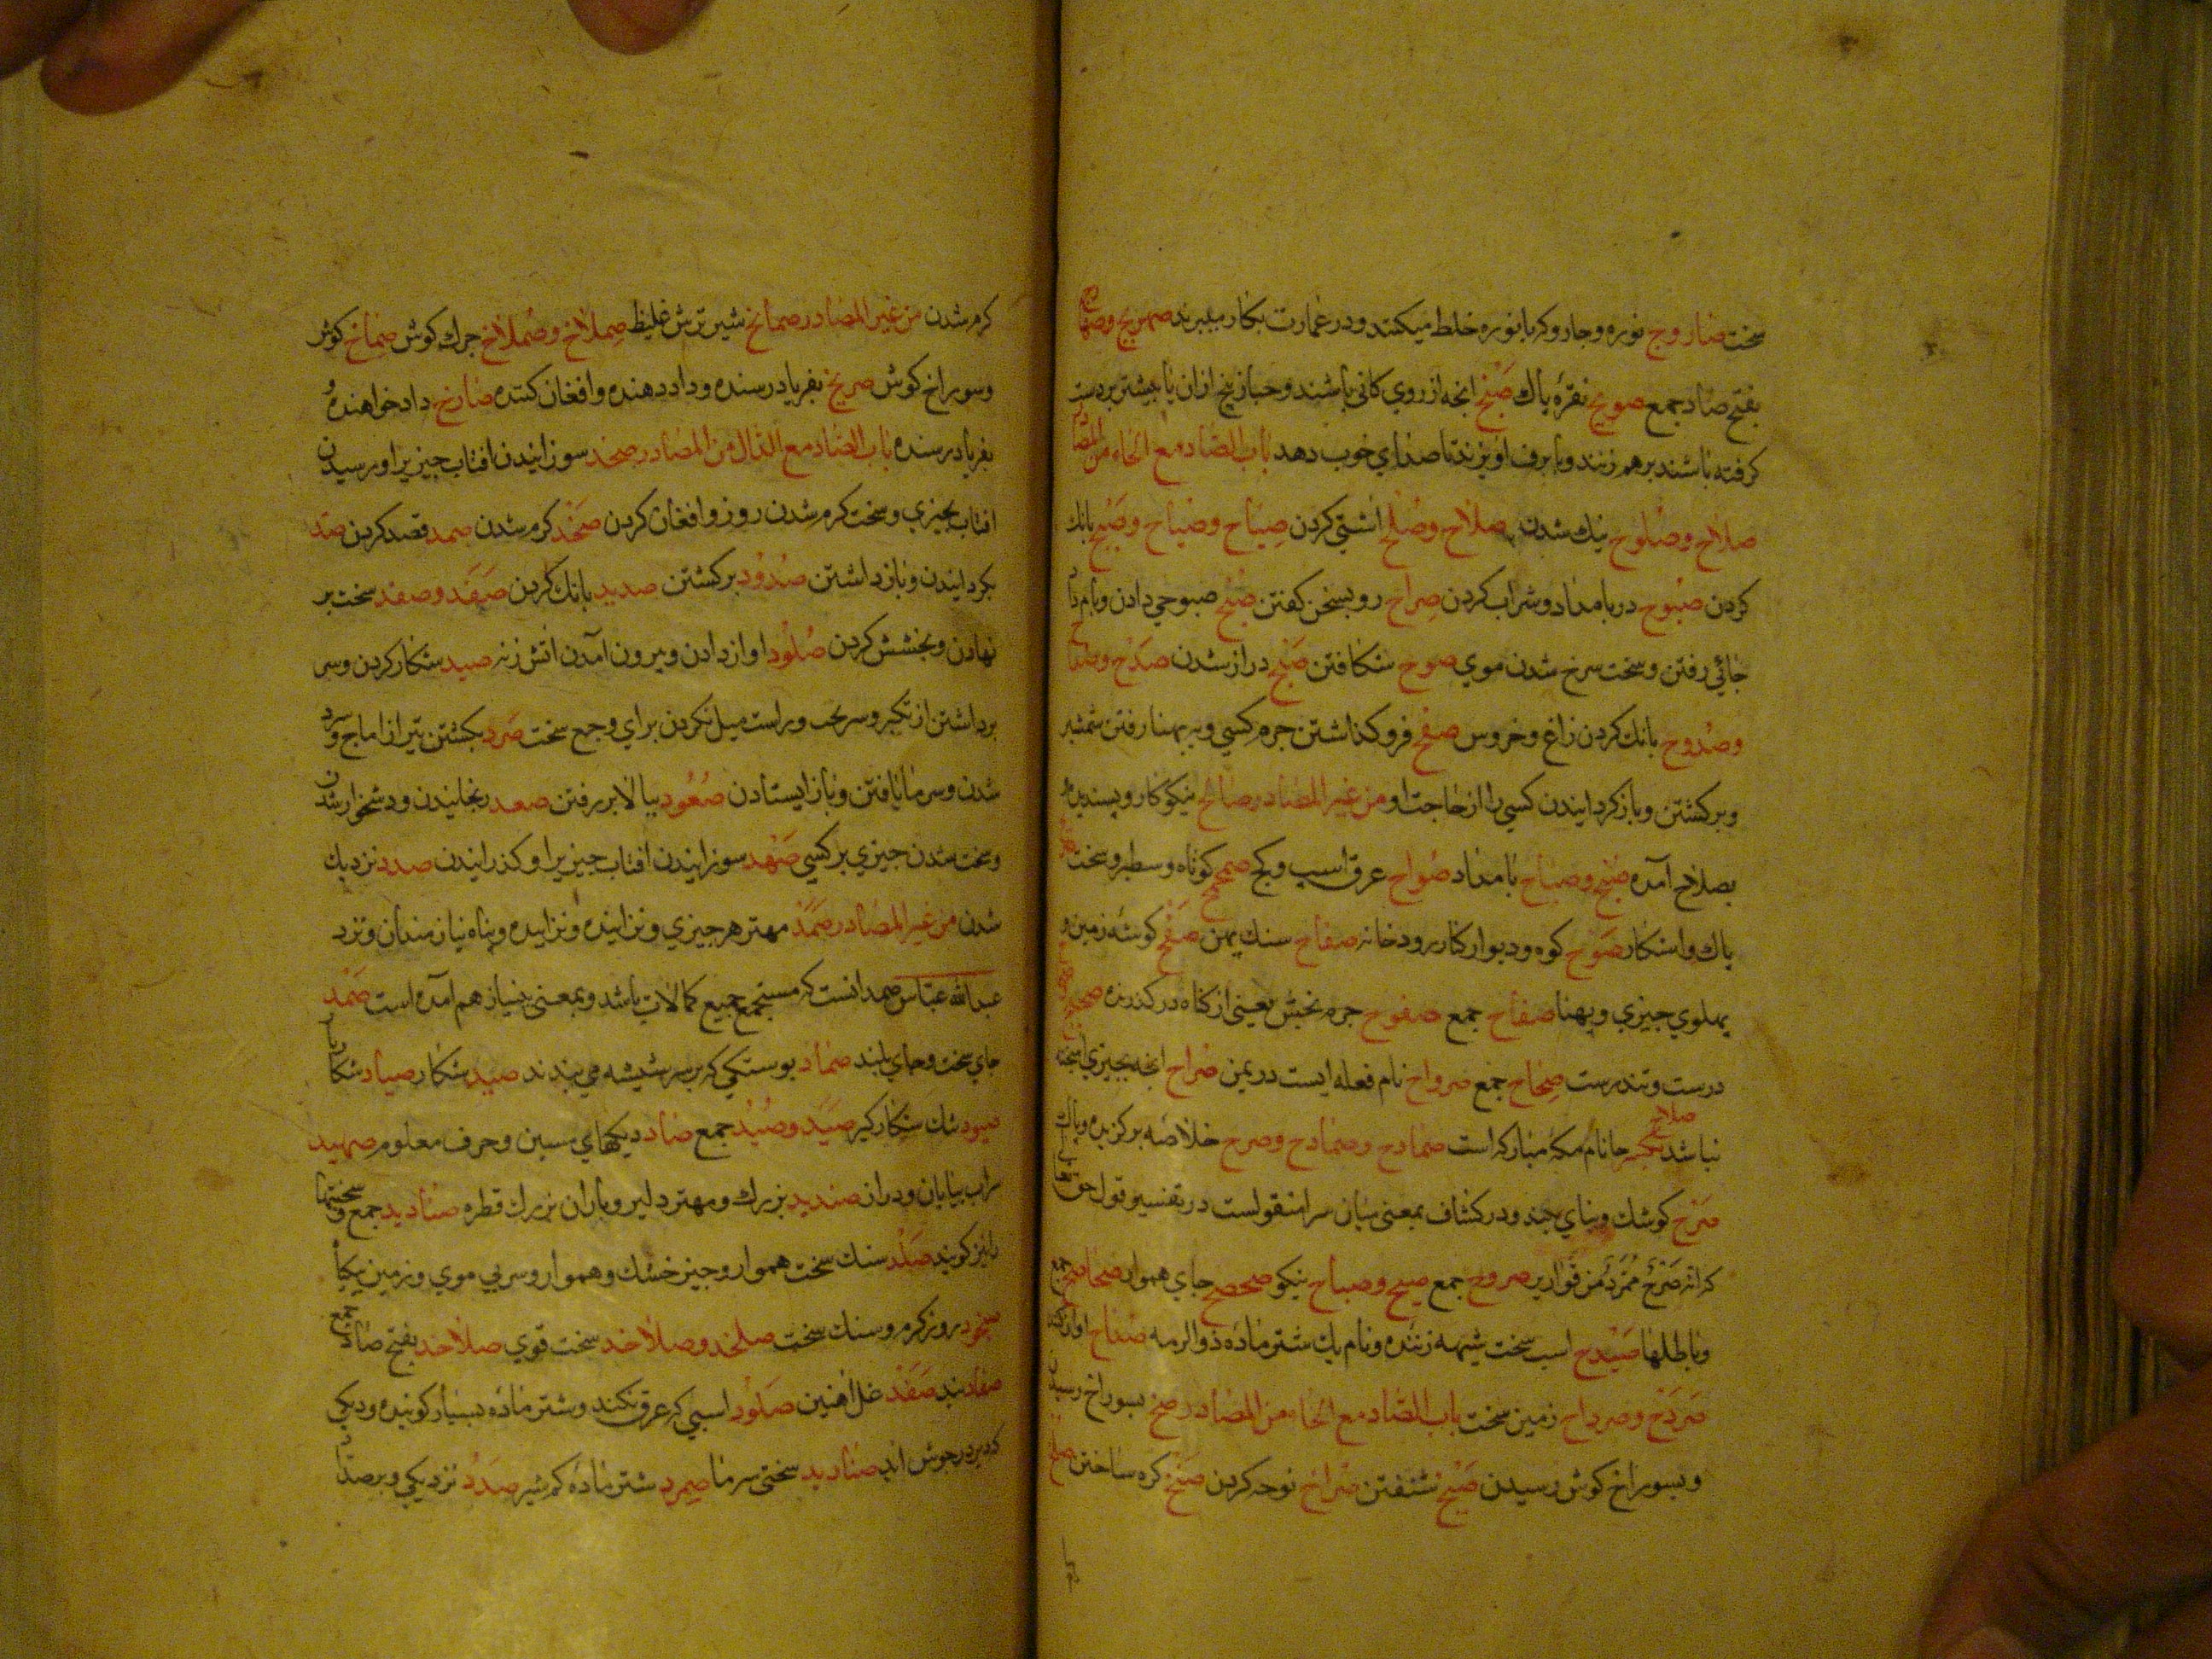 سخت صاروج نوره و جاروکه بانوره خلط میکنند و در عمارت بکار میبرند صهریج وصهاریج
بفتح صاد جمع صویج نقرهٔ پاك صنج انچه از روي کانی باشند و حبازیخ ازان یا بیشتر بر دست
کرفته باشند برهم زنند و یا برف اویزند تا صداي خوب دهد باب الصاد مع الحاء من المصادر
صلاح وصلوح نیك شدن صلاح وصلح اشتي کردن صیاح وصیاح وصیح بانك
کردن صبوح در بامداد و شراب کردن صراح روبسخن کفتن صبح صبوحي دادن و بامداد
جائي رفتن و سخت سرخ شدن موي صوح شکافتن صنح دراز شدن صدح وصداح
وصدوح بانك کردن زاغ و خروس صفح فروکذاشتن جرم کسي و به پهنا رفتن شمشیر
و برکشتن و باز کردانیدن کسي را از حاجت او من غیر المصادر صالح نیکوکار و پسندیده
بصلاح آمده صبح وصباح بامداد صواح عرق اسب و کچ صمحمح کوتاه و سطبر و سخت
پاك و اشکار صوح کوه و دیوار کنار رودخانه صفاح سنك پهن صفح کوشه زمین و
پهلوي چیزي و پهنا صفاح جمع صفوح جرم بخش یعنی از کناه درکذرنده صحیح
درست و تندرست صحاح جمع صرواح نام قعله ایست در یمن صراح انچه بچیزي امیخته
نباشد صلاح بکسر حا نام مکهٔ مبارکه است صمادح وصمادح وصرح خلاصه برکزیده و پاك
صرح کوشك و بناي بلند و در کشاف بمعنی میان سرا منقولست در تفسیر قول حق تعالی
که انه صرح ممرد من قواریر صروح جمع صبیح وصباح نیکو صحصح جاي هموار صحاصح جمع
و باطلها صیدح اسب سخت شیهه زننده و نام یك شتر مادهٔ ذوالرمه صفاح اواز کننده
صردح وصرداح زمین سخت باب الصاد مع الخاء من المصادر صخ بسوراخ رسیدن
و بسوراخ کوش رسیدن صیخ شنفتن صراخ نوحه کردن صنخ کره ساختن
کرم شدن من غیر المصادر صمایخ شیر ترش غلیظ صملاخ وصملاخ جرك کوش صماخ کوش
و سوراخ کوش صریخ بفریاد رسنده و داد دهنده و افغان کننده صارخ داد خواهنده و
بفریاد رسنده باب الصاد مع الدال من المصادر صخد سوزانیدن افتاب چیزیرا و رسیدن
افتاب بچیزي و سخت کرم شدن روز و افغان کردن صخد کرم شدن صمد قصد کردن صد
بکردانیدن و باز داشتن صدود برکشتن صدید بانك کردن صفد وصفد سخت بر
نهادن و بخشش کردن صلود اواز دادن و بیرون آمدن اتش زنه صید شکار کردن و سر
برداشتن از تکبر و سربخ و راست میل نکردن براي وجع سخت صرد بکشتن تیر از اماج و سرد
شدن و سرما یافتن و باز ایستادن صعود ببالا بر رفتن صعد رنجانیدن و دشخوار شدن
و سخت شدن چیزي بر کسي صهد سوزانیدن افتاب چیزیرا و کذرانیدن صدد نزدیك
شدن من غیر المصادر صمد مهتر هر چیزي و نزاینده و نزاییده و پناه نیازمندان و نزد
عبدالله عباس صمد انست که مستجمع جمیع کمالات باشد و بمعنی بینیاز هم امده است صمد
جاي سخت و جاي بلند صماد پوستکي که بر سر شیشه می بندند صید شکار صیاد شکاریان
صیود شك شکارکیر صید وصید جمع صاد دیکهاي مسین و حرف معلوم صهید
سراب بیابان و دراز صندید بزرك و مهتر دلیر و باران بزرك قطره صنادید جمع و سختیها
را نیز کویند صلد سنك سخت هموار و چیز خشك و هموار و سر بي موي و زمین بیکیاه
صیخود روز کرم و سنك سخت صلخد وصلاخد سخت قوي صلاخد بفتح صاد جمع
صفاد بند صفد غل اهنین صلود اسپي که عرق نکند و شتر مادهٔ بسیار کوینده و دیکي
که دیر در جوش اید صنادید سختی سرما صمرد شتر مادهٔ کم شیر صدد نزدیکي و برصداد